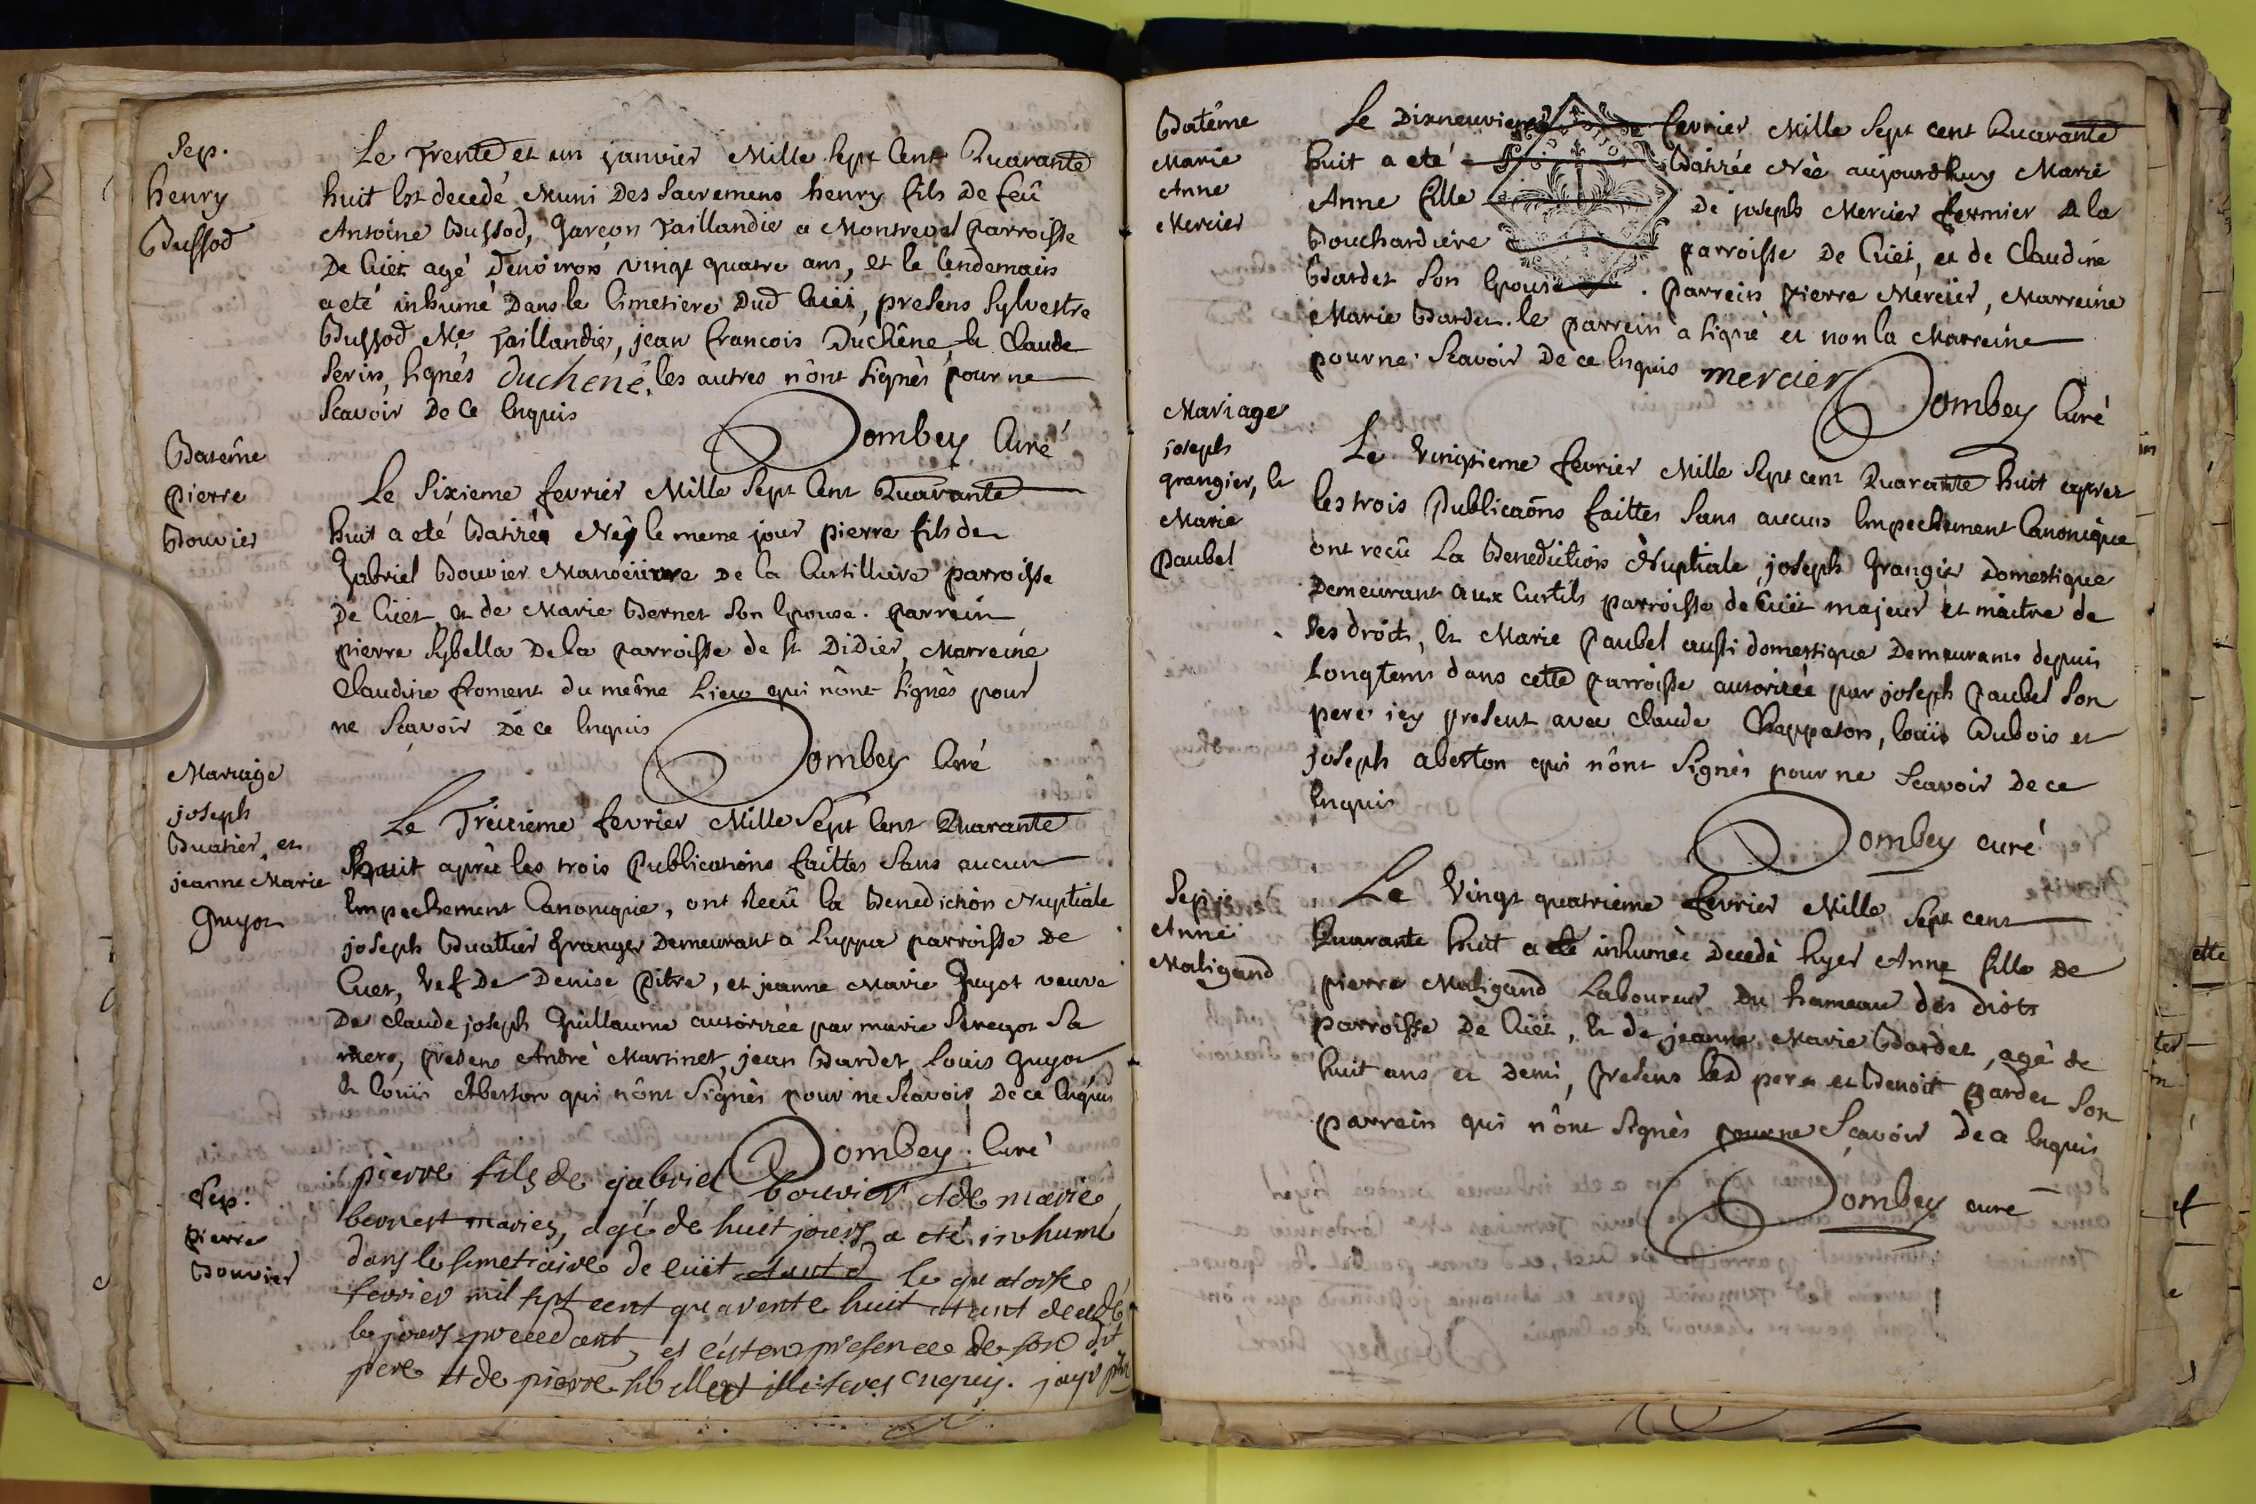 Sep.
henry
Bussod
Le Trente et un janvier Mille Sept Cent Quarante
huit Est decedé Muni Des Sacremens henry fils De feû
Antoine Bussod, Garçon Taillandie a Montrevel Parroisse
De Cuet agé D'environ vingt quatre ans, et le lendemain
a eté inhumé Dans le Cimetiere Dud Cuet, presens Sylvestre
Bussod Me Taillandie, jean francois Duchêne, et Claude
Serin, signés duchene, les autres n'ônt signès pour ne
Scavoir De Ce Enquis
Dombey Curé
Batême
pierre
Bouvier
Le Sixieme fevrier Mille Sept Cent Quarante
huit a eté Batizé Né le meme jour pierre fils de
Gabriel Bouvier Manoeuvre De la Curtilliere parroisse
De Cuet et de Marie Bernet Son Epouse. parrein
pierre Sybella De la parroisse de St Didier, Marreine
Claudine froment du même Lieu qui n'ônt signès pour
ne Scavoir De ce Enquis
Dombey Curé
Mariage
joseph
Buatier, et
jeanne Marie
Guyot
Le Treizieme fevrier Mille Sept Cent Quarante
huit aprés les trois Publications faittes Sans aucun
Empechement Canonique, ont Receû la Benediction Nuptiale
joseph Buattier Granger Demeurant a Luppa parroisse De
Cuet, Vef De Denise Pitre, et jeanne Marie Guyot veuve
De Claude joseph Guillaume autorizée par marie
mere, presens André Martinet, jean Bardet, Louis Guyot
et Louis Aberton qui n'ônt Signès pour ne Scavoir De ce Enquis
Dombey Curé
Sep.
Pierre
Bouvier
pierre fils de gabriel bouvier et de marie
bernest mariez, agé de huit jours a eté inhumé
dans le semetiaire de cuët le quatorse
fevrier mil sept cent quarente huit etant decedé
le jours precedant, et c'ést en presence de son dit
pere et de pierre enquis.
Batême
Marie
Anne
Mercier
Le Dixneuvieme fevrier Mille Sept cent Quarante
huit a eté Batizée Née aujourdhuy Marie
Anne fille De joseph Mercier fermier De la
Bouchardiere parroisse De Cuet, et de Claudine
Bardet Son Epouse. Parrein Pierre Mercier, Marreine
Marie Bardet. le parrein a signé et non la Marreine
pour ne Scavoir De ce Enquis mercier
Dombey Curé
Mariage
joseph
grangier, et
Marie
Paubel
Le Vingtieme fevrier Mille Sept cent Quarante huit aprez
les trois Publicaõns faittes Sans aucun Empechement Canonique
ont recû La Benediction Nuptiale joseph Grangier Domestique
Demeurant aux Curtils parroisse de Cuët majeur et maitre de
Ses droits, et Marie Paubel aussi domestique Demeurante depuis
Longtems dans cette parroisse autorizée par joseph Paubel Son
pere icy present avec Claude Chappaton, louis Dubois et
joseph aberton qui n'ônt Signès pour ne Scavoir De ce
Enquis
Dombey curé
Sep.
Anne
Maligand
Le Vingt quatrieme fevrier Mille Sept cent
Quarante huit a eté inhumée Decedé hyer Anne fille De
pierre Maligand Laboureur Du hameau des Diots
parroisse De Cuet, et de jeanne Marie Bardet, agé de
huit ans et Demi, presens led pere et Benoit Bardet Son
parrein qui n'ônt Signès pour ne Scavoir De ce Enquis
Dombey curé